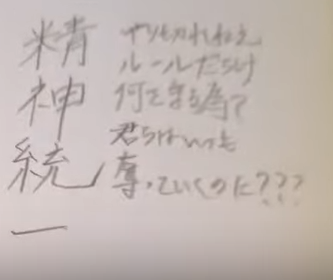 精神統一
やり切れねえ
ルールだらけ
何を守る為で
君らはいつも
奪っていくのだ???